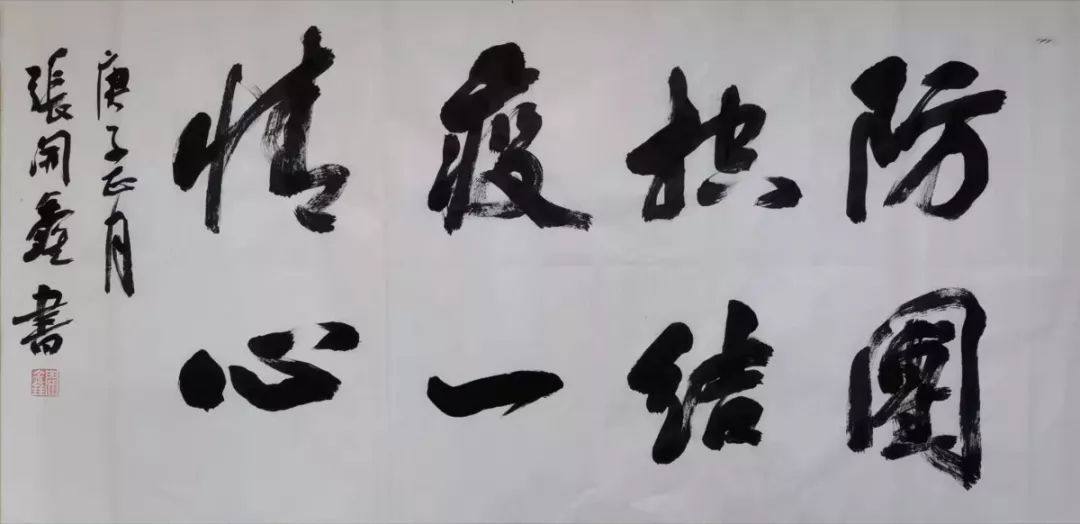 防控疫情
團結一心
庚子正月
張開鑫書